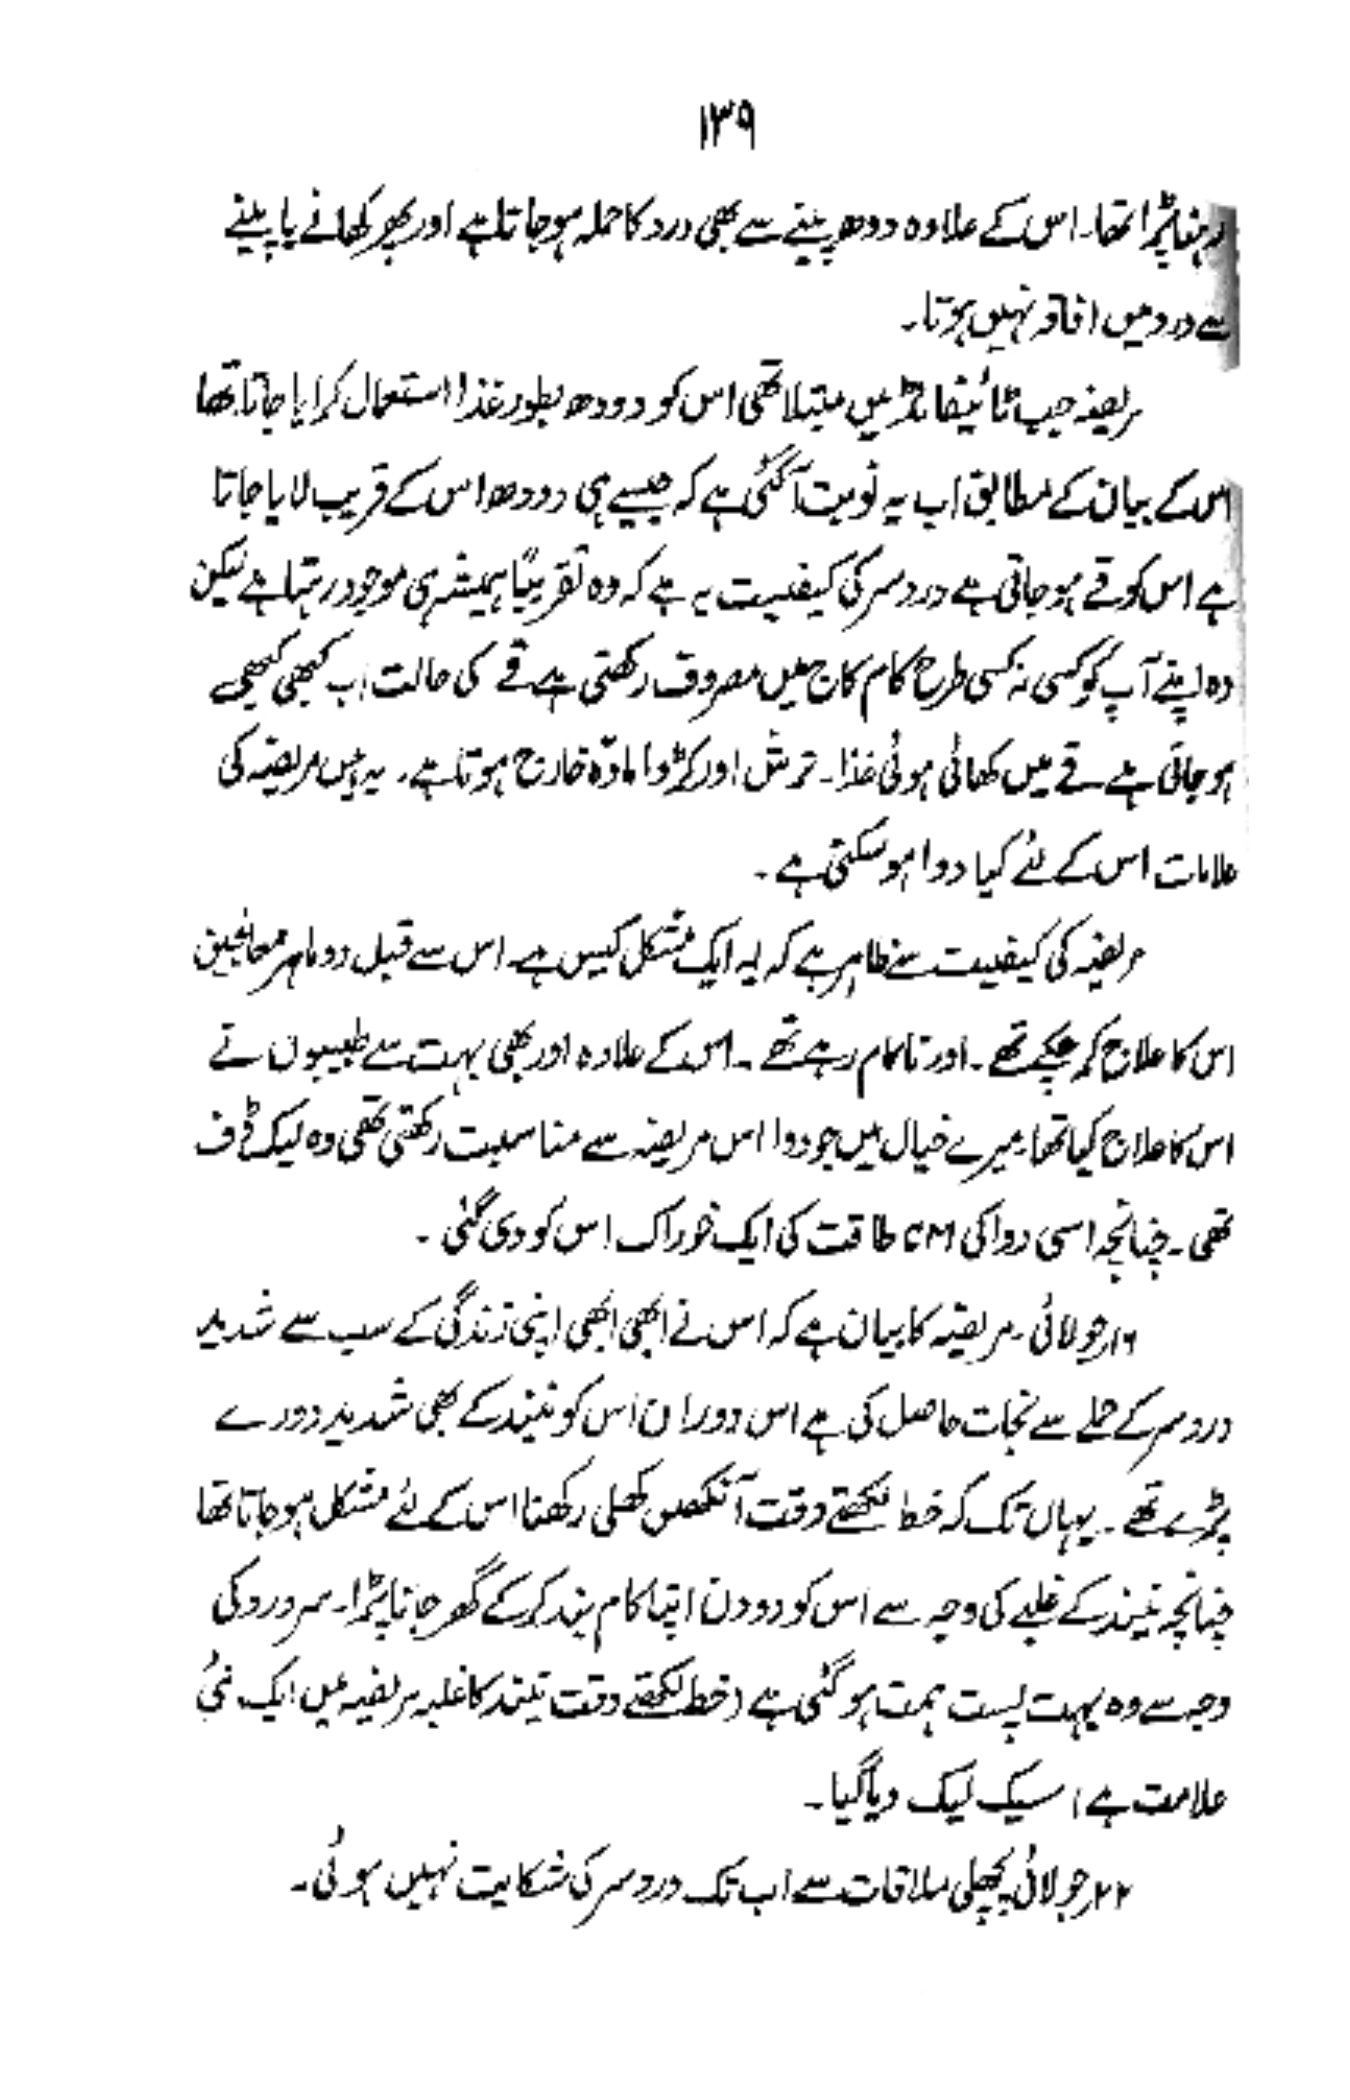 ۱۳۹
رہنا پڑا تھا۔ اس کے علاوہ دودھ پینے سے بھی درد کا حملہ ہو جاتا ہے اور پھر کھانے یا پینے
سے درد میں افاقہ نہیں ہوتا۔
مریضہ جب ٹائیفائڈ میں مبتلا تھی اس کو دودھ بطور غذا استعمال کرایا جاتا تھا
اس کے بیان کے مطابق اب یہ نوبت آ گئی ہے کہ جیسے ہی دودھ اس کے قریب لایا جاتا
ہے اس کو قے ہو جاتی ہے درد سر کی کیفیت یہ ہے کہ وہ تقریباً ہمیشہ ہی موجود رہتا ہے لیکن
وہ اپنے آپ کو کسی نہ کسی طرح کام کاج میں مصروف رکھتی ہے قے کی حالت اب کبھی کبھی
ہو جاتی ہے۔ قے میں کھائی ہوئی غذا۔ ترش اور کڑوا مادّہ خارج ہوتا ہے۔ یہ ہیں مریضہ کی
علامات اس کے لئے کیا دوا ہو سکتی ہے۔
مریضہ کی کیفیت سے ظاہر ہے کہ یہ ایک مشکل کیس ہے۔ اس سے قبل دو ماہر معالجین
اس کا علاج کر چکے تھے۔ اور ناکام رہے تھے۔ اس کے علاوہ اور بھی بہت سے طبیبوں نے
اس کا علاج کیا تھا۔ میرے خیال میں جو دوا اس مریضہ سے مناسبت رکھتی تھی وہ لیک ڈف
تھی۔ چنانچہ اسی دوا کی CM طاقت کی ایک خوراک اس کو دی گئی۔
۱۶ر جولائی۔ مریضہ کا بیان ہے کہ اس نے ابھی ابھی اپنی زندگی کے سب سے شدید
درد سر کے حملے سے نجات حاصل کی ہے اس دوران اس کو نیند کے بھی شدید دورے
پڑے تھے۔ یہاں تک کہ خط لکھتے وقت آنکھیں کھلی رکھنا اس کے لئے مشکل ہو جاتا تھا
چنانچہ نیند کے غلبے کی وجہ سے اس کو دو دن اپنا کام بند کر کے گھر جانا پڑا۔ سر درد کی
وجہ سے وہ بہت پست ہمت ہو گئی ہے (خط لکھتے وقت نیند کا غلبہ مریضہ میں ایک نئی
علامت ہے) سیک لیک دیا گیا۔
۲۲ر جولائی پچھلی ملاقات سے اب تک درد سر کی شکایت نہیں ہوئی۔